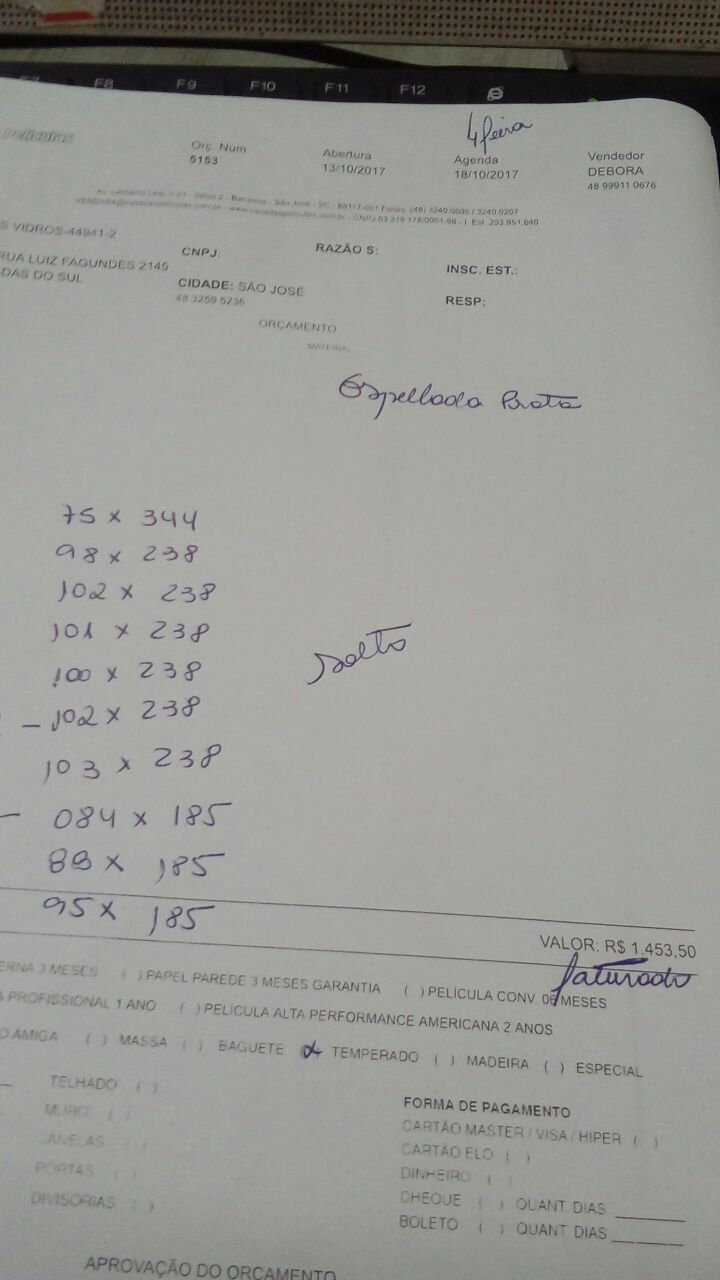 F7 F8 F9 F10 F11 F12
4 feira
Orç. Num Abertura Agenda Vendedor
5153 13/10/2017 18/10/2017 DEBORA
48 99911 0676
S VIDROS-44941-2
CNPJ: RAZÃO S: INSC. EST.:
RUA LUIZ FAGUNDES 2145
DAS DO SUL CIDADE: SÃO JOSÉ RESP:
48 3259 5236
ORÇAMENTO
MATERIAL
Espellada Prata
75 x 344
98 x 238
102 x 238
101 x 238
100 x 238
- 102 x 238
103 x 238
- 084 x 185
88 x 185
95 x 185
VALOR: R$ 1.453,50
faturado
ERNA 3 MESES ( ) PAPEL PAREDE 3 MESES GARANTIA ( ) PELÍCULA CONV 06 MESES
A PROFISSIONAL 1 ANO ( ) PELÍCULA ALTA PERFORMANCE AMERICANA 2 ANOS
O AMIGA ( ) MASSA ( ) BAGUETE TEMPERADO ( ) MADEIRA ( ) ESPECIAL
TELHADO ( )
MURO ( )
JANELAS ( )
PORTAS ( )
DIVISÓRIAS ( )
FORMA DE PAGAMENTO
CARTÃO MASTER / VISA / HIPER ( )
CARTÃO ELO ( )
DINHEIRO ( )
CHEQUE ( ) QUANT DIAS
BOLETO ( ) QUANT DIAS
APROVAÇÃO DO ORÇAMENTO